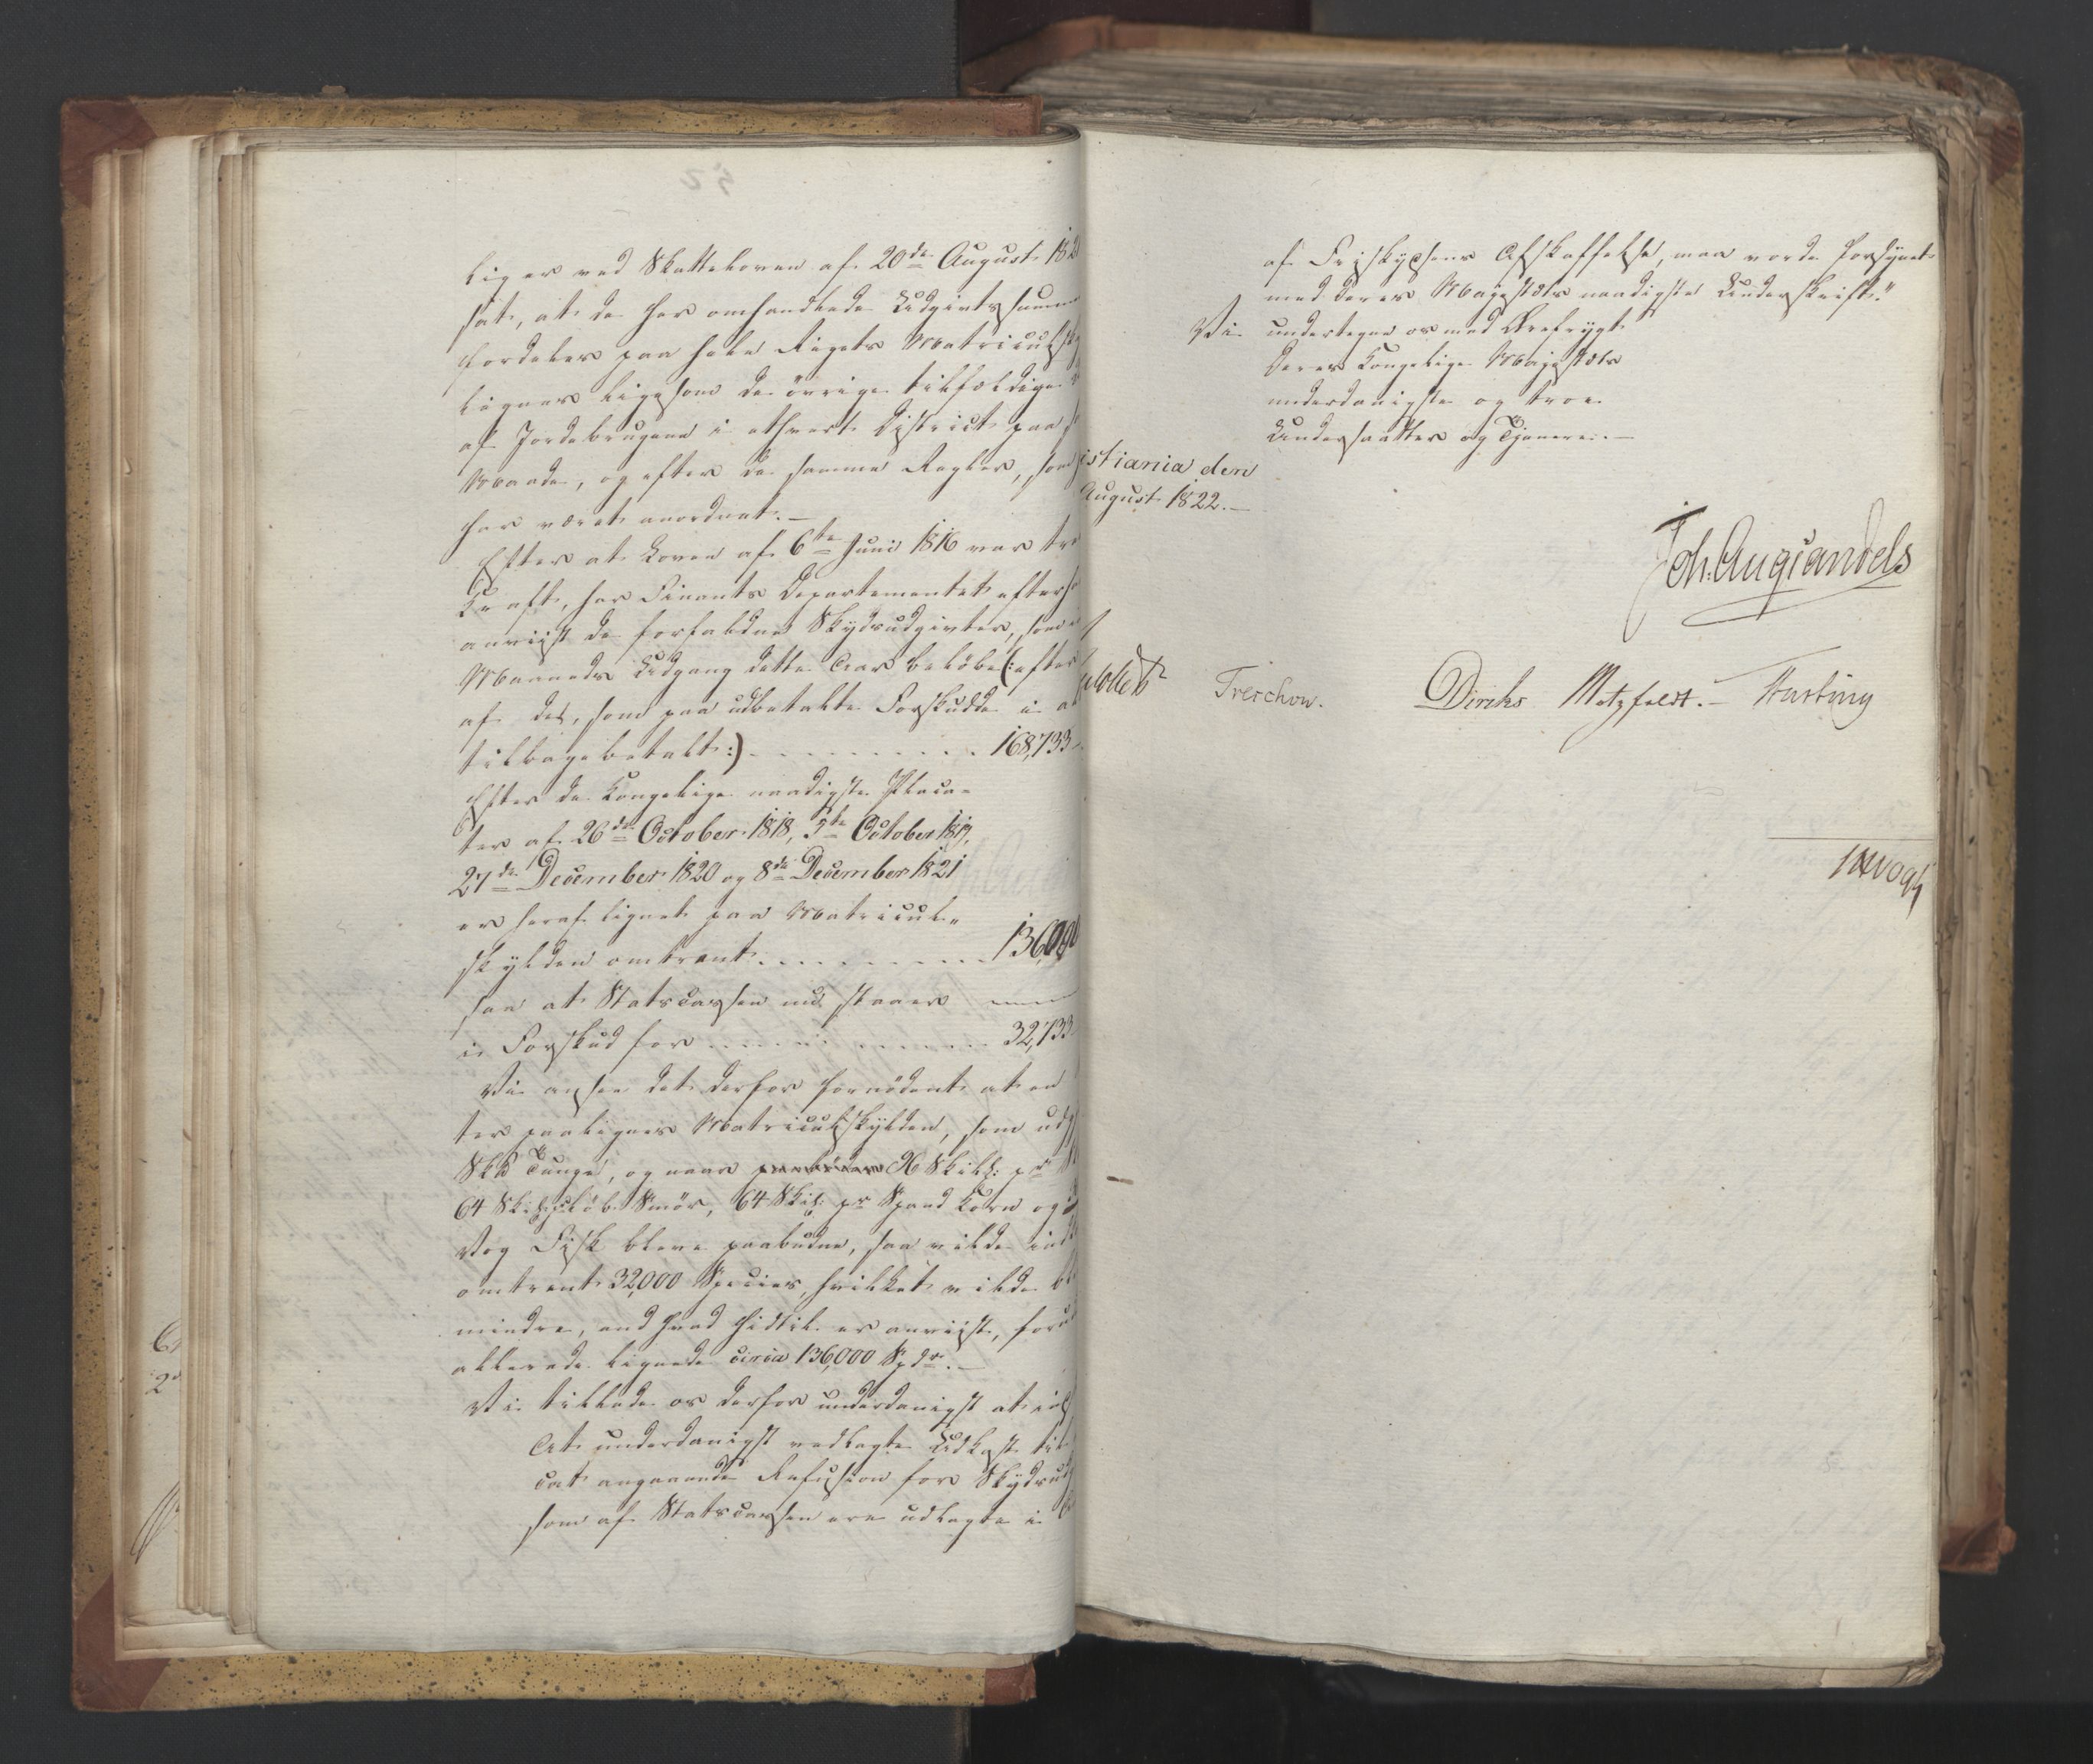 lig er ved Skatteloven af 20de August 182
sat, at de her omhandlede Udgivtssum
fordeles paa hele Rigets Matriculsk
lignes ligesom de övrige tilfældige
af Jordebrugene i ethvert District paa s
Maade, og efter de samme Regler, som
har været anordnet. —
Efter at Loven af 6te Juni 1816 var tr
Kraft, har Finants Departementet efterh
anviist de forfaldne Skydsudgivter, som i
Maaneds Udgang dette Aar belöbe (: efter
af det, som paa udbetalte Forskudde i
tilbagebetalt :) - - - - - - - - 168,733
Efter de Kongelige naadigste Placa-
ter af 26de October 1818, 5te October 1819,
27de December 1820 og 8de December 1821
er heraf lignet paa Matricul-
skylden omtrent - - - - - - - 136,000
saa at Statscassen nu staaer
i Forskud for - - - - - - - 32,733
Vi ansee det derfor fornödent at en
ter paalignes Matriculskylden, som udg
Skd Tunge, og naar 96 Skill: pr
64 Skill: pr Löb Smör, 64 Skil: pr Spand Korn og
Vog Fisk bleve paabudne, saa vilde ind
omtrent 32,000 Species, hvilket vilde bl
mindre, end hvad hidtil er anviist, foru
allerede lignede circa 136,000 Spdr. —
Vi tillade os derfor underdanigst at ind
At underdanigst vedlagte Udkast til
cat angaaende Refusion for Skydsud
som af Statscassen ere udlagte i
af Friskydsens Afskaffelse, maa vorde forsynet
med Deres Majestæts naadigste Underskrift."
Vi undertegne os med Ærefrygt
Deres Kongelige Majestæts
underdanigste og troe
Undersaatter og Tjenere. —
istiania den
August 1822. —
Joh. Aug Sandels
Treschow.
Diriks Motzfeldt. — Fasting
JHVogt